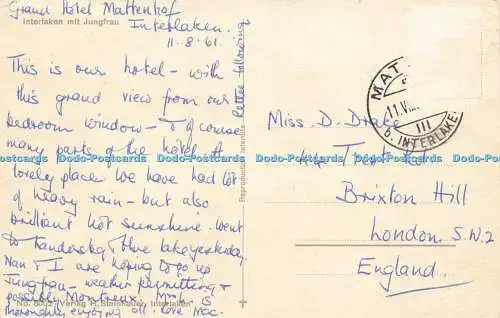 Grand Hotel Mattenhof
Interlaken.
Interlaken mit Jungfrau
11.8.61.
This is our hotel - with
this grand view from our
bedroom window - & of course
many parts of the hotel. A
lovely place. We have had lot
of heavy rain - but also
brilliant hot sunshine. Went
to Kandersteg & Blue lake yesterday.
Nan & I are hoping to go up
Jungfrau - weather permitting &
possibly Montreux. Mrs. is
thoroughly enjoying all. Love Mac.
Letter following
No. 8002 Verlag H. Steinhauer, Interlaken
MAT
11.VIII
III
b. INTERLAKEN
Miss D. Drake
Brixton Hill
London. S.W.2
England.
Dodo-Postcards Dodo-Postcards Dodo-Postcards Dodo-Postcards Dodo-Postcards